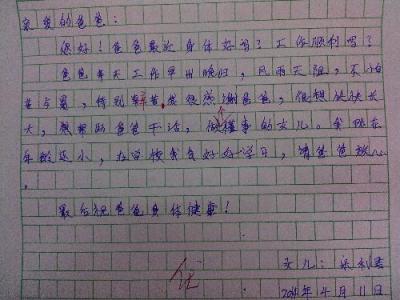 亲爱的爸爸：
您好！爸爸最近身体好吗？工作顺利吗？
爸爸每天工作早出晚归，风雨无阻，不怕
苦与累，特别辛苦。我很感谢爸爸，很想快快长
大，想帮助爸爸干活，做懂事的女儿。我现在
年龄还小，在学校我会好好学习，请爸爸放心
。
最后祝爸爸身体健康！
优
女儿：
年4月11日